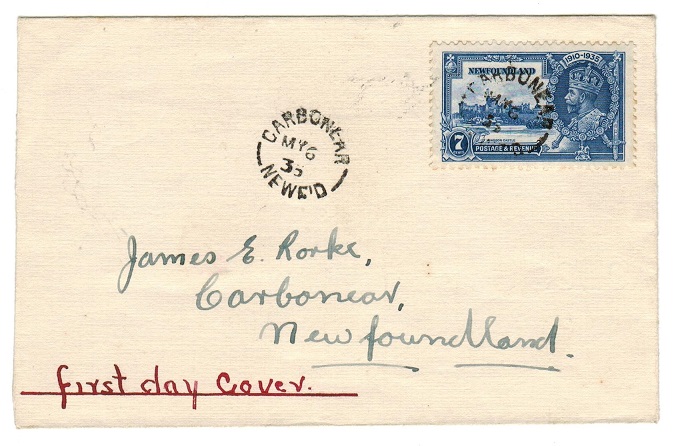 1910-1935
NEWFOUNDLAND
CARBONEAR
MY 6
35
7
WINDSOR CASTLE
POSTAGE & REVENUE
CARBONEAR
MY 6
35
NEWF'D
James E. Rorke,
Carbonear,
Newfoundland.
First day Cover.